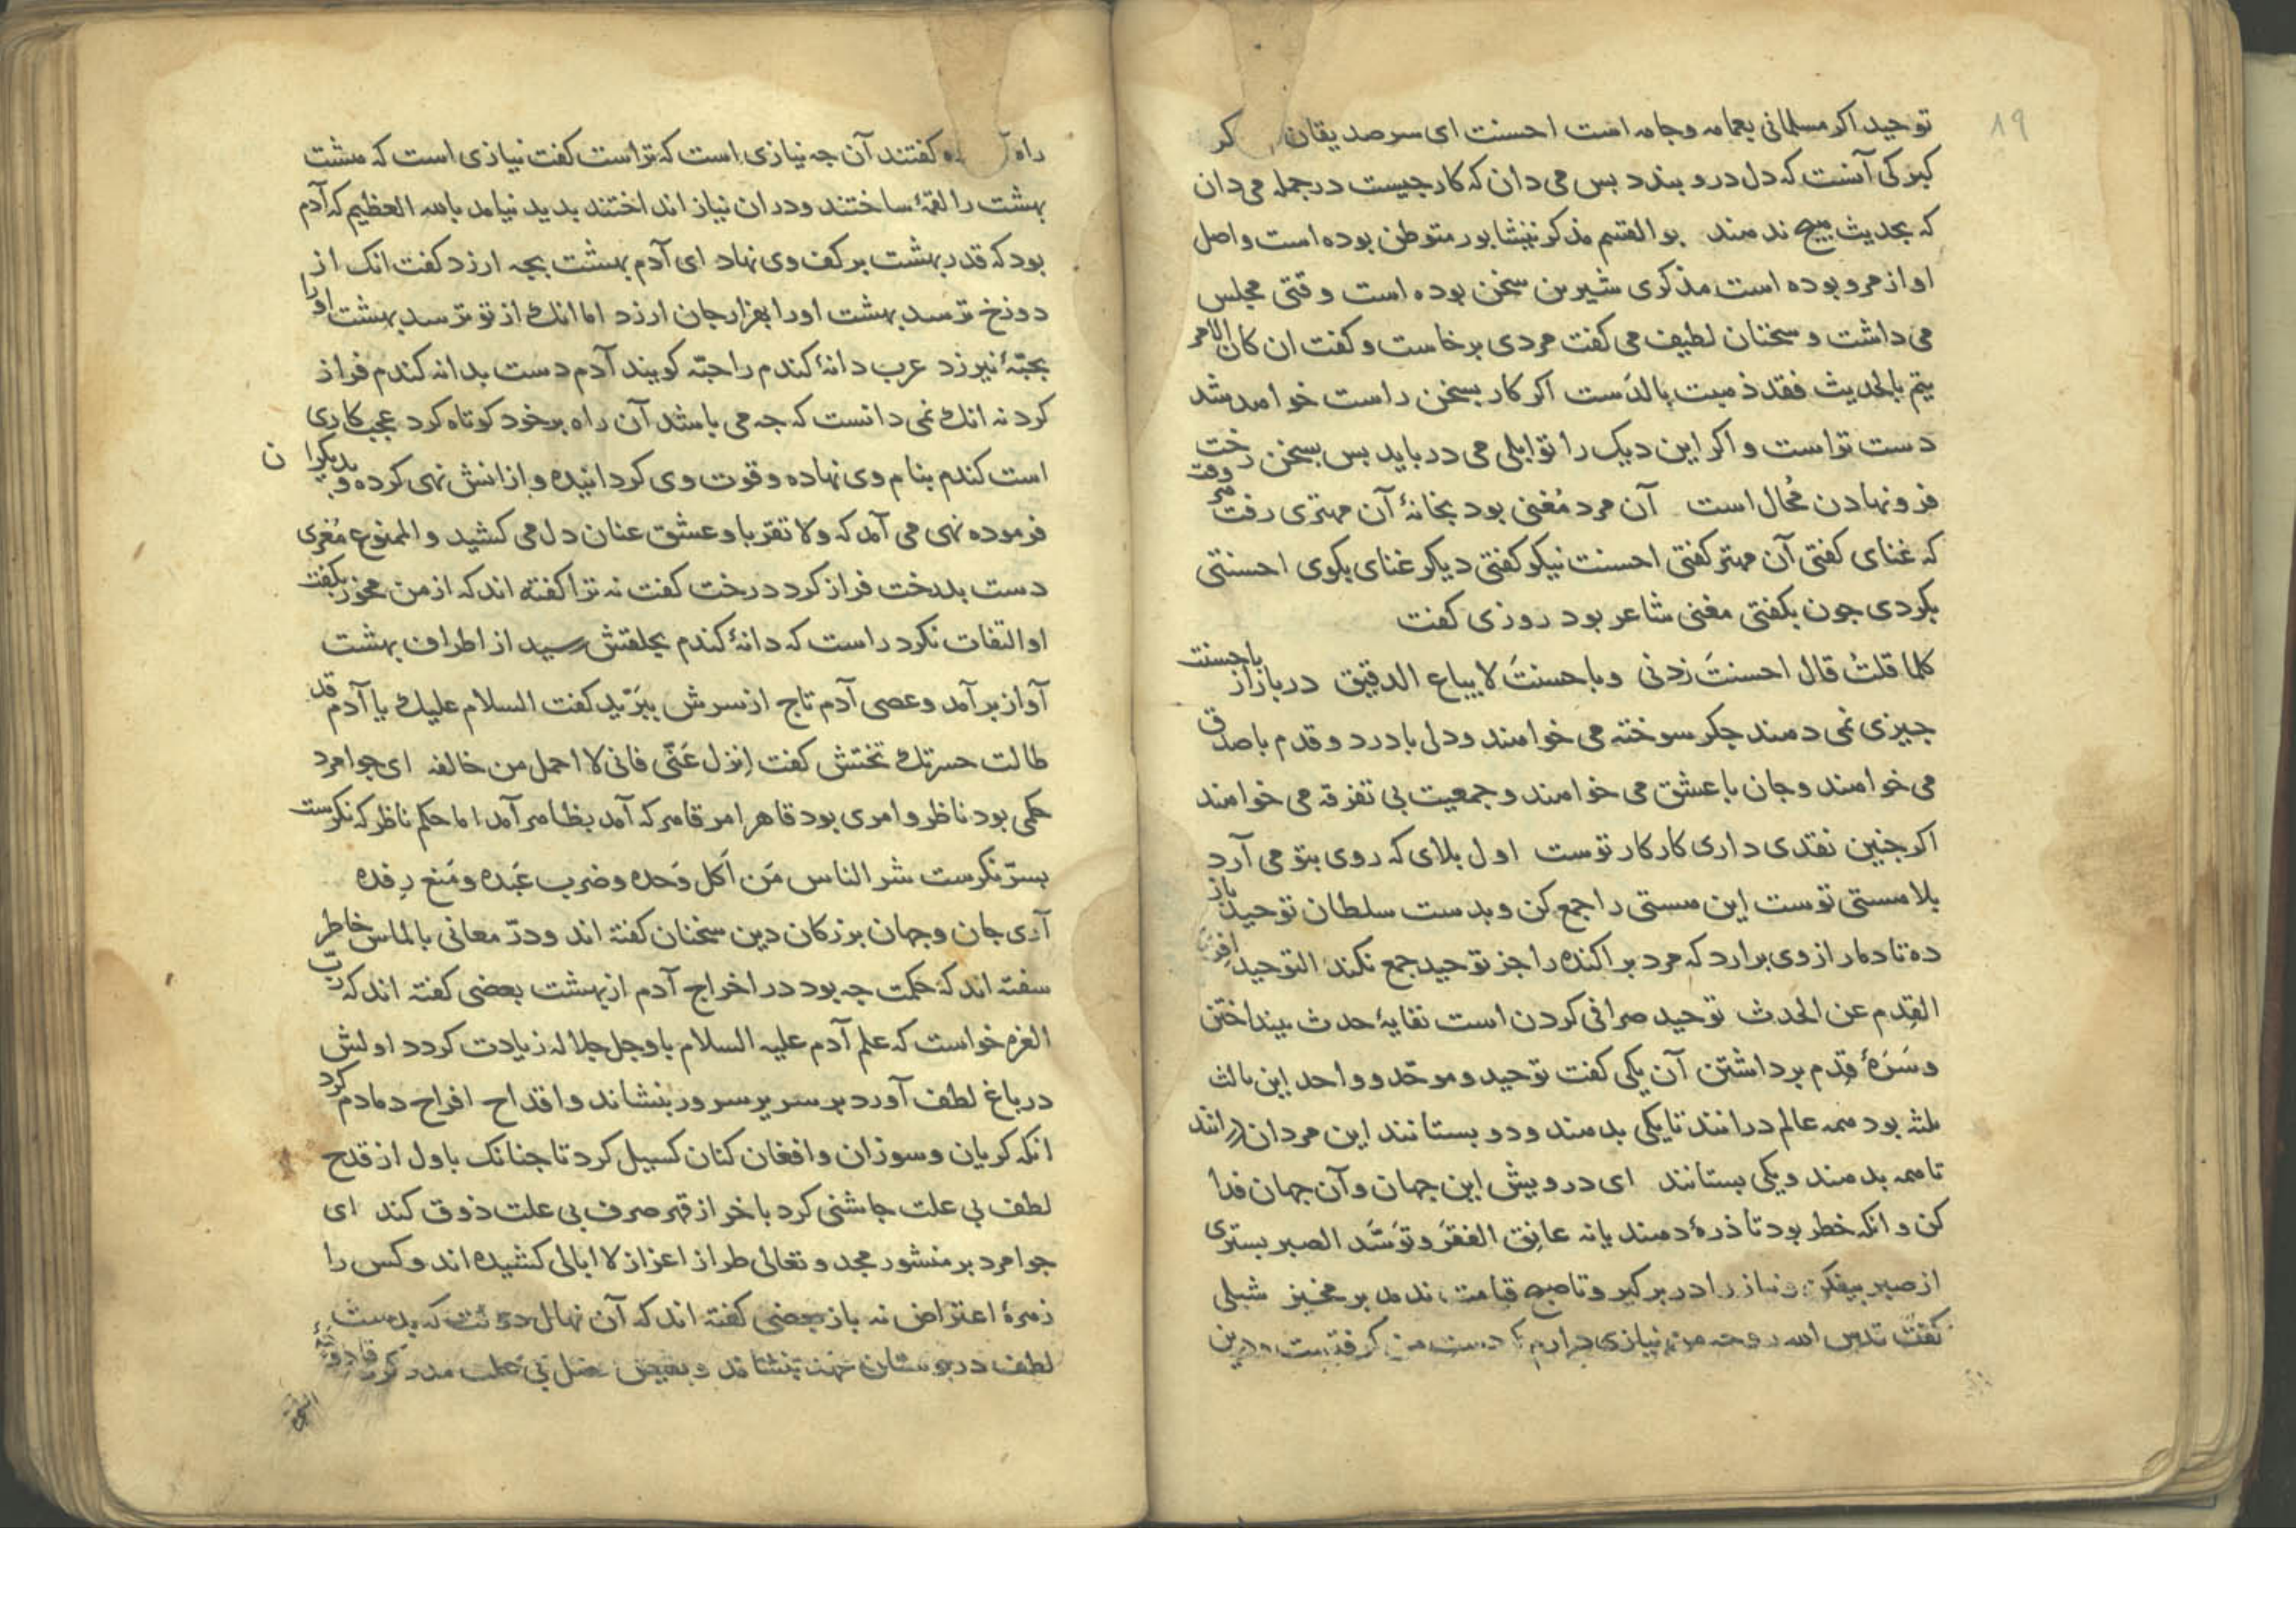 ۱۹
توحید اکر مسلمانی بعمامه وجامه است احسنت ای سر صدیقان کر
کبرکی آنست که دل درو بندد بس می دان که کار جیست در جمله می دان
که بحدیث هیج ندهند بو القسم مذکر نیشابور متوطن بوده است واصل
او از مرو بوده است مذکری شیرین سخن بوده است وقتی مجلس
می داشت و سخنان لطیف می کفت مردی برخاست و کفت ان کان الامر
یتم بالحدیث فقد ذهبت بالدست اکر کار بسخن راست خواهد شد
دست تراست و اکر این دیک را توابلی می درباید بس بسخن رخت
فرونهادن مُحال است آن مرد مُغنی بود بخانهٔ آن مهتری رفت هر وقت
که غنای کفتی آن مهتر کفتی احسنت نیکو کفتی دیکر غنای بکوی احسنتی
بکردی جون بکفتی مغنی شاعر بود روزی کفت
کلما قلتُ قال احسنتَ زدنی وباحسنتَ لا یباع الدقیق در بازار باحسنت
جیزی نمی دهند جکر سوخته می خواهند ودل با درد و قدم با صدق
می خواهند و جان با عشق می خواهند وجمعیت بی تفرقه می خواهند
اکر جنین نقدی داری کار کار توست اول بلای که روی بتو می آرد
بلا هستی توست این هستی را جمع کن و بدست سلطان توحید باز
ده تا دمار از وی برارد که مرد براکنده را جز توحید جمع نکند التوحید افراد
القِدم عن الحدث توحید صرافی کردن است نفایهٔ حدث بینداختن
وسَرَهٔ قِدم برداشتن آن یکی کفت توحید وموحّد وواحد این ثالث
ثلثه بود همه عالم درانند تا یکی بدهند ودو بستانند این مردان درانند
تا همه بدهند ویکی بستانند ای درویش این جهان وآن جهان فدا
کن و انکه خطر بود تا ذرهٔ دهند یا نه عانِق الفقرَ وتوَسَّد الصبر بستری
از صبر بیفکن ونیاز را در بر کیر وتا صبح قیامت ندمد بر مخیز شبلی
کفت قدس الله روحه من نیازی دارم که دست من کرفتست ودرین
راه آ کفتند آن جه نیازی است که تراست کفت نیازی است که هشت
بهشت را لقمهٔ ساختند ودران نیاز انداختند بدید نیامد بالله العظیم که آدم
بود که قدر بهشت بر کف وی نهاد ای آدم بهشت بجه ارزد کفت انک از
دوزخ ترسد بهشت اورا بهزار جان ارزد اما انک از تو ترسد بهشت اورا
بحبّهٔ نیرزد عرب دانهٔ کندم را حبّه کویند آدم دست بدانه کندم فراز
کرد نه انک نمی دانست که جه می باشد آن راه بر خود کوتاه کرد عجب کاری
است کندم بنام وی نهاده وقوت وی کردانیده وازانش نهی کرده وبدیکران
فرموده نهی می آمد که ولا تقربا وعشق عنان دل می کشید والممنوع مُغری
دست بدرخت فراز کرد درخت کفت نه ترا کفته اند که از من مخور بکفت
او التفات نکرد راست که دانهٔ کندم بحلقش رسید از اطراف بهشت
آواز برآمد وعصی آدم تاج از سرش ببَرّید کفت السلام علیک یا آدم قد
طالت حسرتک تختش کفت اِنزل عَنّی فانی لا احمل من خالفه ای جوامرد
حکمی بود ناظر وامری بود قاهر امر قاهر که آمد بظاهر آمد اما حکم ناظر که نکرست
بسرّ نکرست شر الناس مَن اَکل وَحده وضرب عَبده ومَنع رِفده
آری جان وجهان بزرکان دین سخنان کفته اند ودرّ معانی بالماس خاطر
سفته اند که حکمت جه بود در اخراج آدم از بهشت بعضی کفته اند که رب
العزه خواست که علم آدم علیه السلام باو جل جلاله زیادت کردد اولش
در باغ لطف آورد بر سریر سرور بنشاند واقداح افراح دمادم کرد
انکه کریان وسوزان وافغان کنان کسیل کرد تا جنانک باول از قدح
لطف بی علت جاشنی کرد باخر از قهر صرف بی علت ذوق کند ای
جوامرد بر منشور مجد و تعالی طراز اعزاز لا ابالی کشیده اند وکس را
زهرهٔ اعتراض نه باز بعضی کفته اند که آن نهال دولت که بدست
لطف در بوستان بنشاند و بفیض فضل بی علت مدد کرد